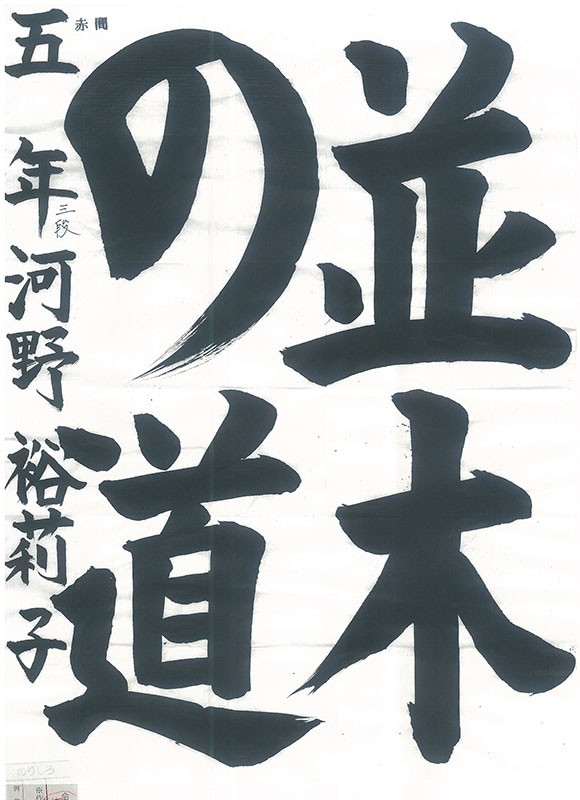 並木
の道
赤間
五年 河野 裕莉子
三段
のりしろ